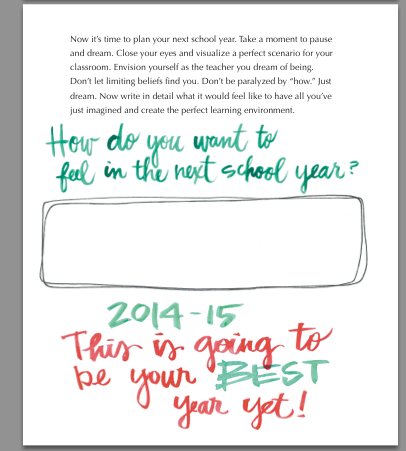 Now it's time to plan your next school year. Take a moment to pause
and dream. Close your eyes and visualize a perfect scenario for your
classroom. Envision yourself as the teacher you dream of being.
Don't let limiting beliefs find you. Don't be paralyzed by “how.” Just
dream. Now write in detail what it would feel like to have all you've
just imagined and create the perfect learning environment.
How do you want to
feel in the next school year?
2014-15
This is going to
be your BEST
year yet!